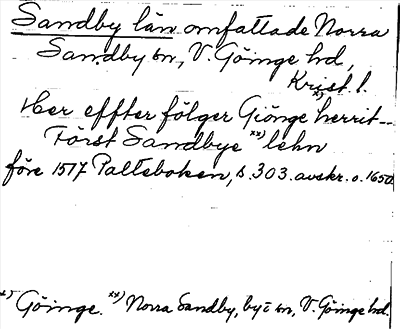 Sandby län omfattade Norra
Sandby sn, V. Göinge hd,
Krist. l.
Her effter fölger Giönge x) herrit--
Först Sandbye xx) lehn
före 1577 Palteboken, s. 303. avskr. o. 1650.
x) Göinge. xx) Norra Sandby, by i sn, V. Göinge hd.